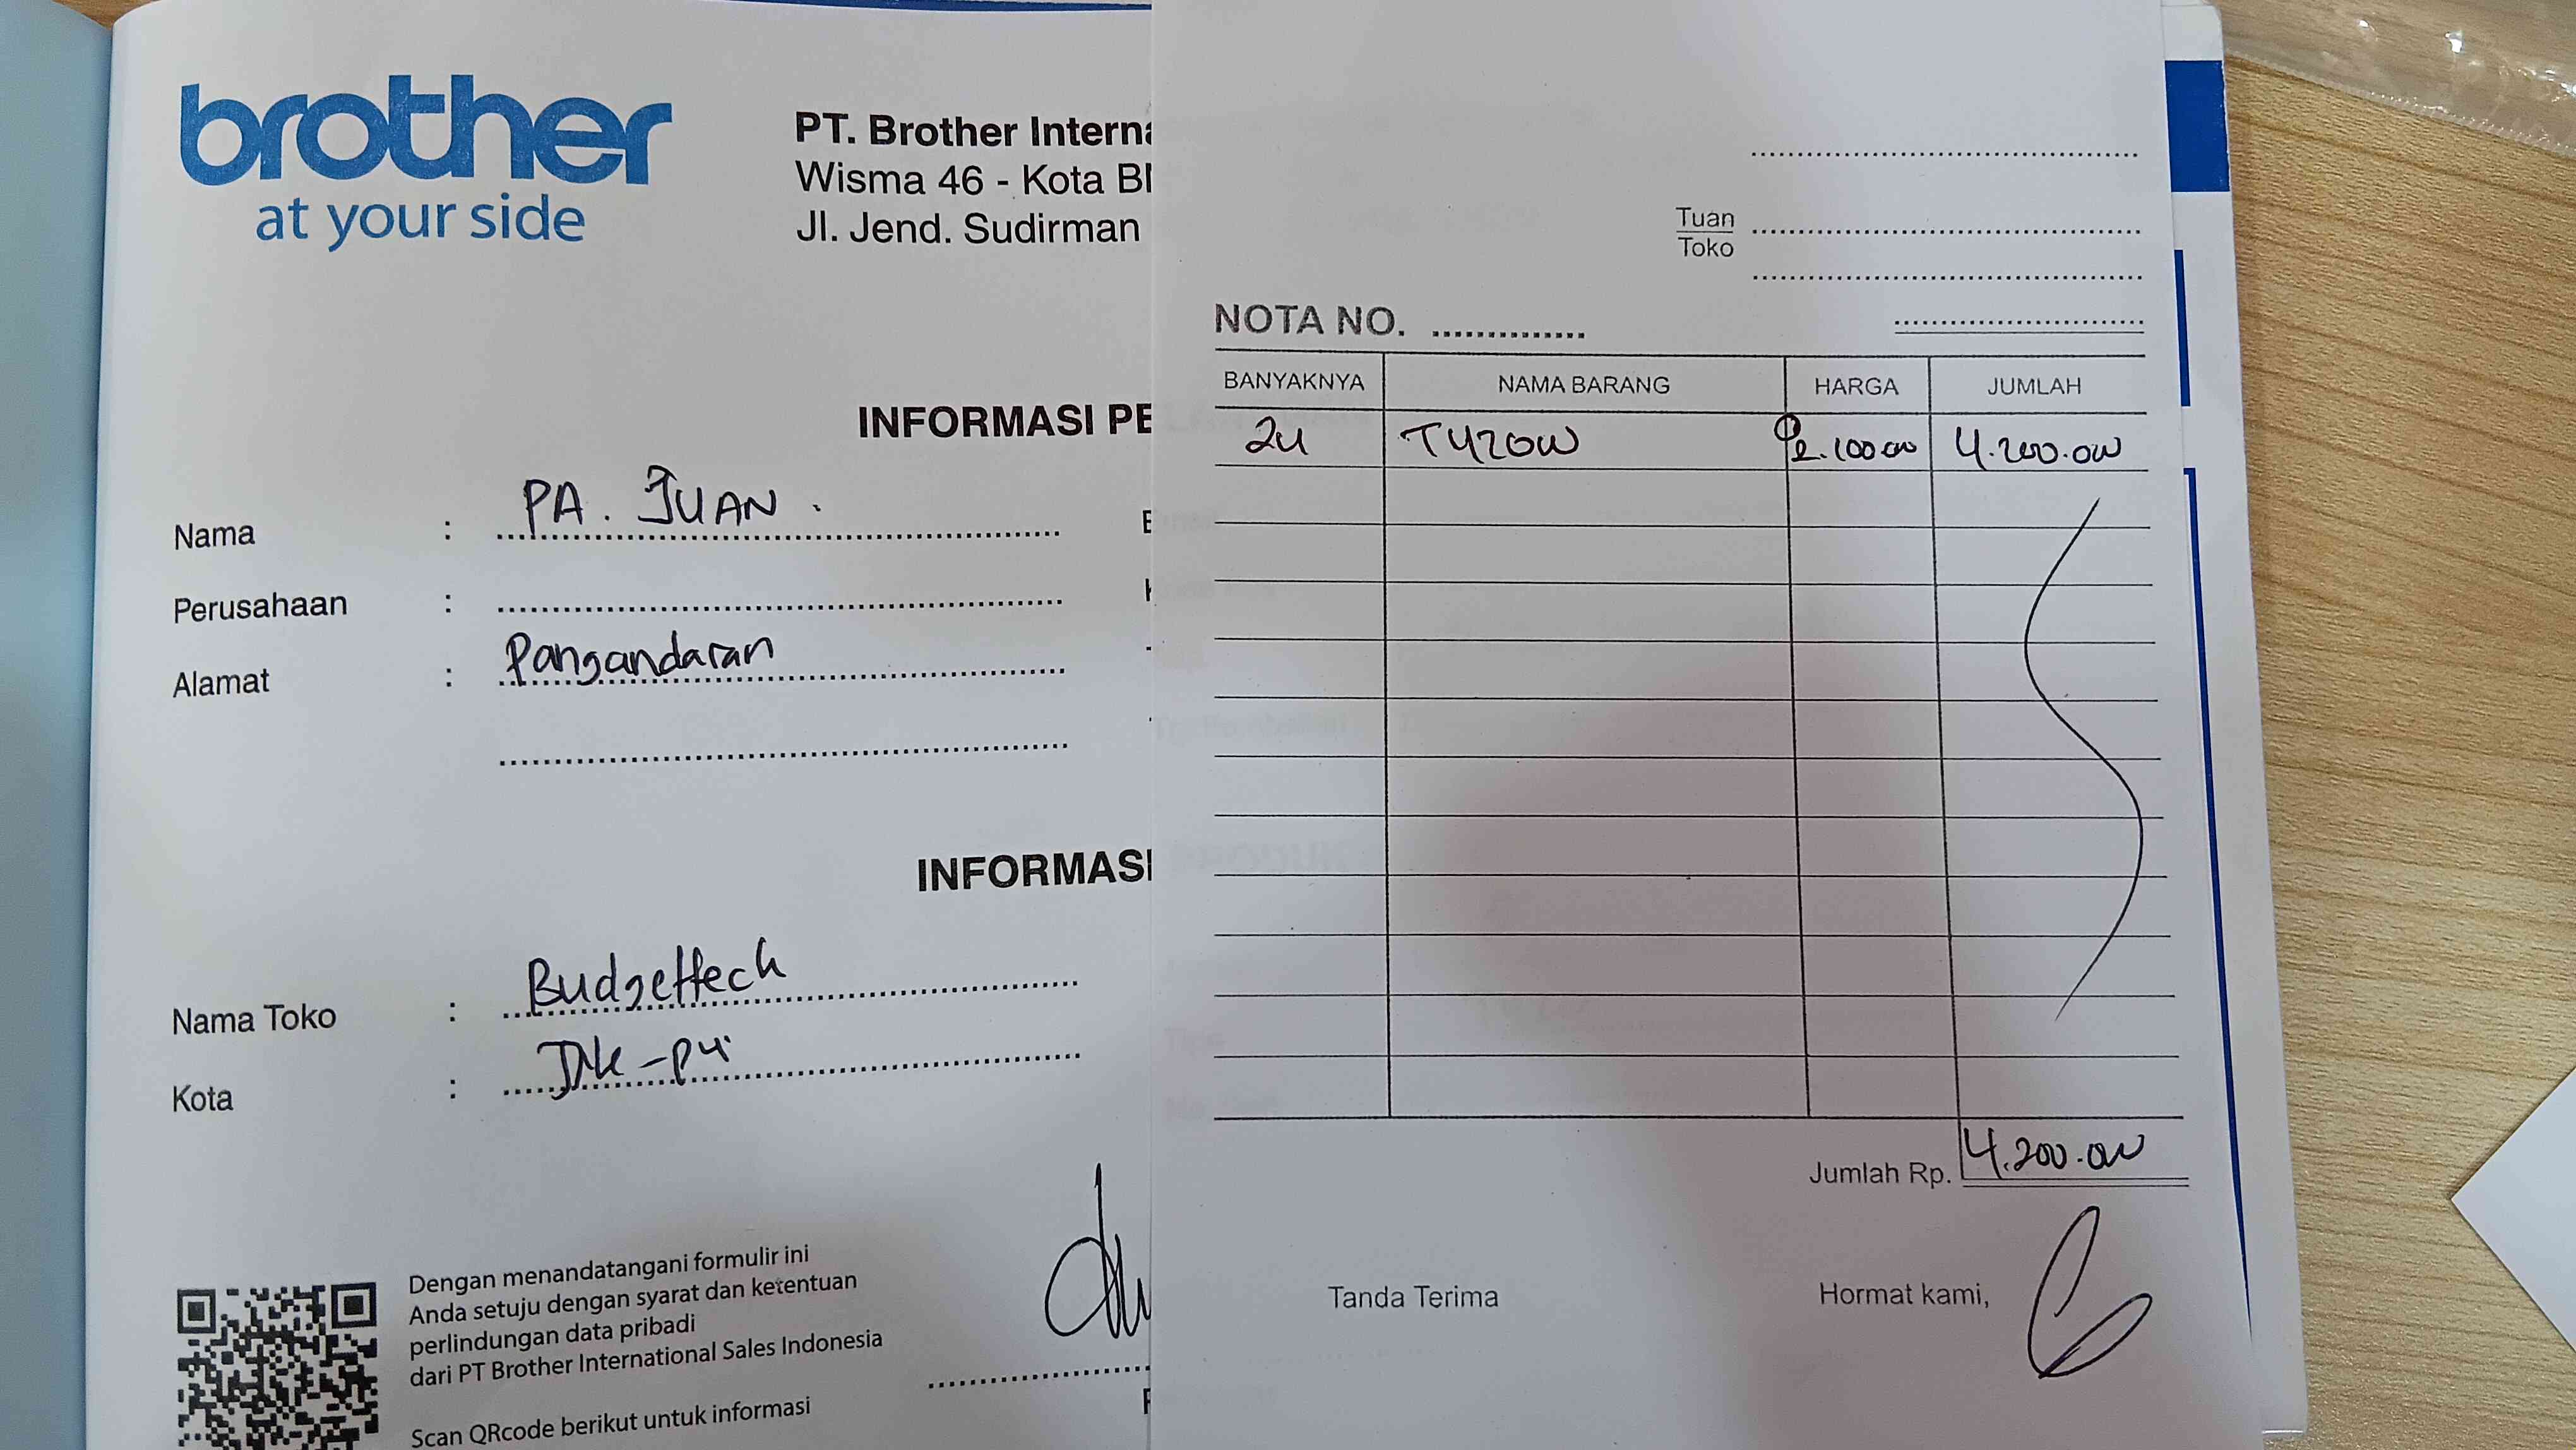 brother
at your side
PT. Brother Interna
Wisma 46 - Kota BN
Jl. Jend. Sudirman
INFORMASI PE
Nama : PA. JUAN.
Perusahaan :
Alamat : Pangandaran
INFORMASI
Nama Toko : Budgettech
Kota :
Dengan menandatangani formulir ini
Anda setuju dengan syarat dan ketentuan
perlindungan data pribadi
dari PT Brother International Sales Indonesia
Scan QRcode berikut untuk informasi
Tuan
Toko
NOTA NO.
BANYAKNYA NAMA BARANG HARGA JUMLAH
2u 2.100.000 4.200.000
Jumlah Rp. 4.200.000
Tanda Terima Hormat kami,